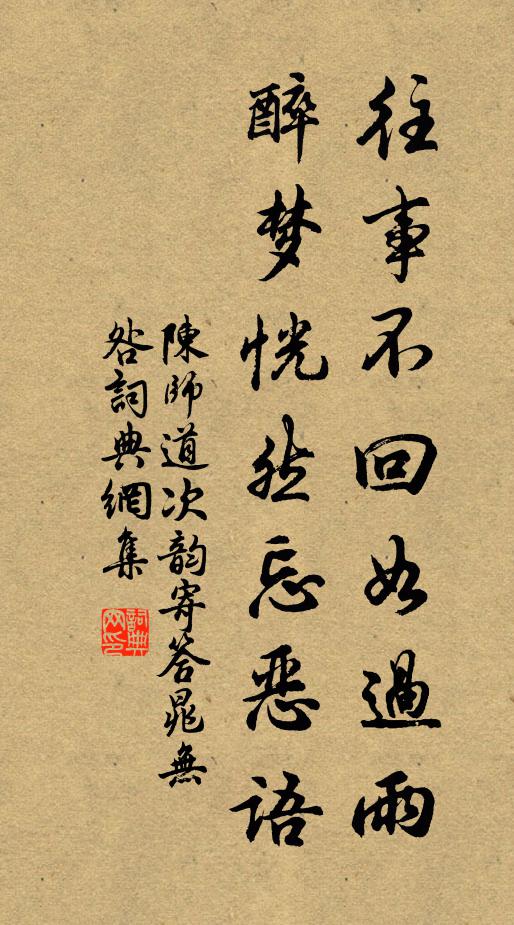 往事不回如過雨
醉梦恍然忘恶语
陳師道次韵寄答晁無
咎詞典網集
詞典
网印